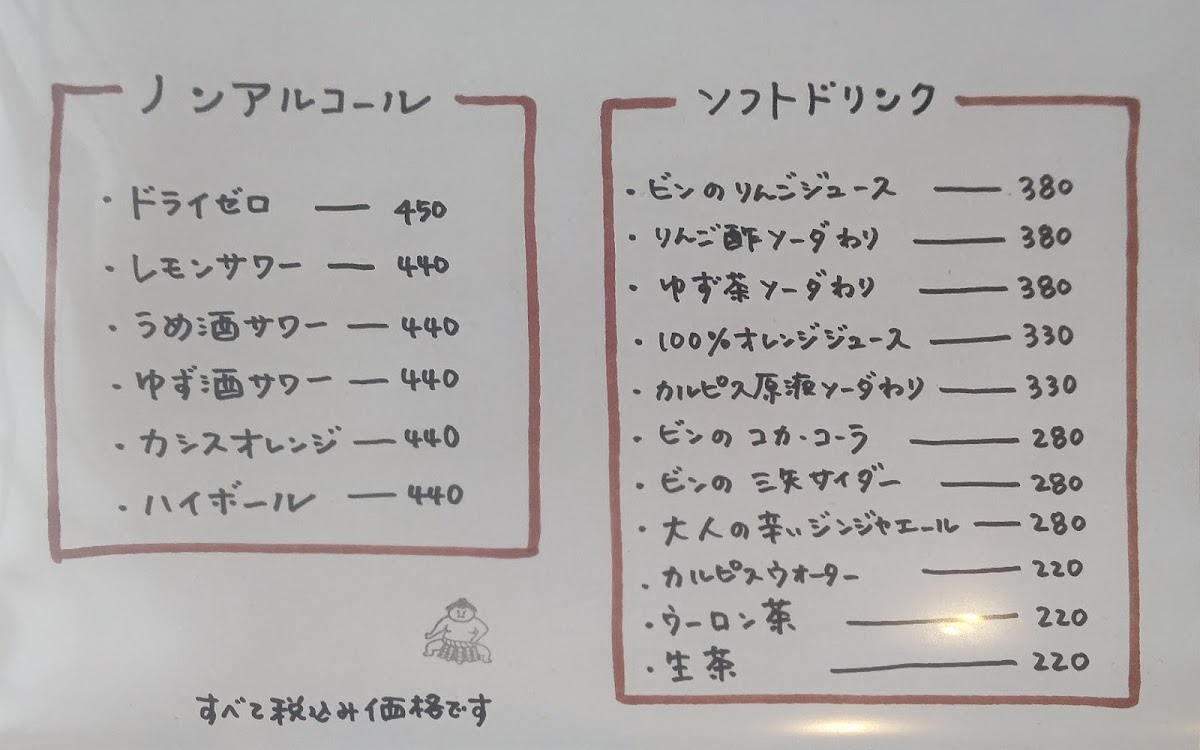 ノンアルコール
・ドライゼロ — 450
・レモンサワー — 440
・うめ酒サワー — 440
・ゆず酒サワー — 440
・カシスオレンジ — 440
・ハイボール — 440
すべて税込み価格です
ソフトドリンク
・ビンのりんごジュース — 380
・りんご酢ソーダわり — 380
・ゆず茶ソーダわり — 380
・100%オレンジジュース — 330
・カルピス原液ソーダわり — 330
・ビンの コカ・コーラ — 280
・ビンの 三矢サイダー — 280
・大人の辛いジンジャエール — 280
・カルピスウオーター — 220
・ウーロン茶 — 220
・生茶 — 220